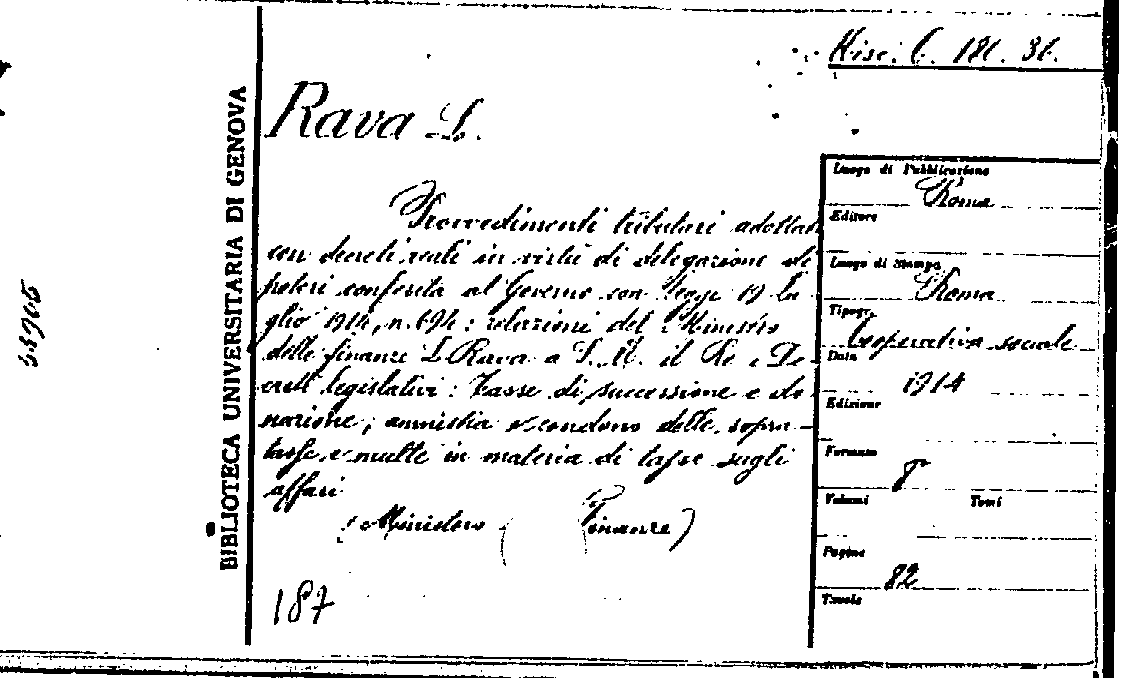 Misc. C. 181. 31.
BIBLIOTECA UNIVERSITARIA DI GENOVA
Rava L.
Provvedimenti tributari adottati
con decreti reali in virtù di delegazione de
poteri conferita al Governo con legge 19 lu
glio 1914, n. 694: relazioni del Ministro
delle finanze L. Rava a S. M. il Re e De-
creti legislativi: Tasse di successione e do
nazione; amnistia e condono delle sopra-
tasse e multe in materia di tasse sugli
affari
(Ministero ( Finanze)
187
Luogo di Pubblicazione
Roma
Editore
Luogo di Stampa
Roma
Tipogr.
Cooperativa sociale
Data
1914
Edizione
Formato
8°
Volumi Tomi
Pagine
82
Tavole